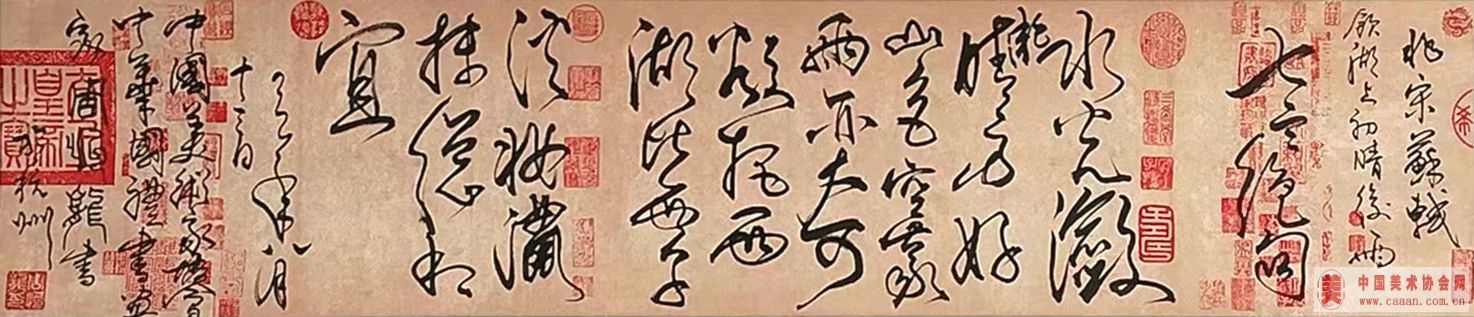 北宋蘇軾
飲湖上初晴後雨
七言絕句
水光瀲
灧晴方好
山色空蒙
雨亦奇
欲把西
湖比西子
淡妝濃
抹總相
宜
年八月
中國美術家協會
中華國禮書畫
家周龍書
於杭州
美 中国美术协会网
www.caaan.com.cn